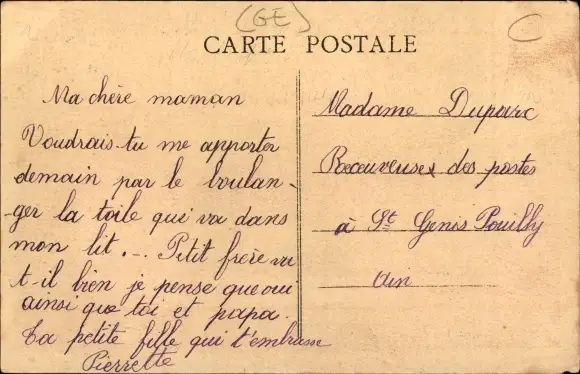 (GE)
C
CARTE POSTALE
Ma chère maman
Voudrais-tu me apporter
demain par le boulan-
-ger la toile qui va dans
mon lit. -. Petit frère va
t-il bien je pense que oui
ainsi que toi et papa.
Ta petite fille qui t'embrasse
Pierrette
Madame Duparc
Receuveuse des postes
à St Genis Pouilly
Ain